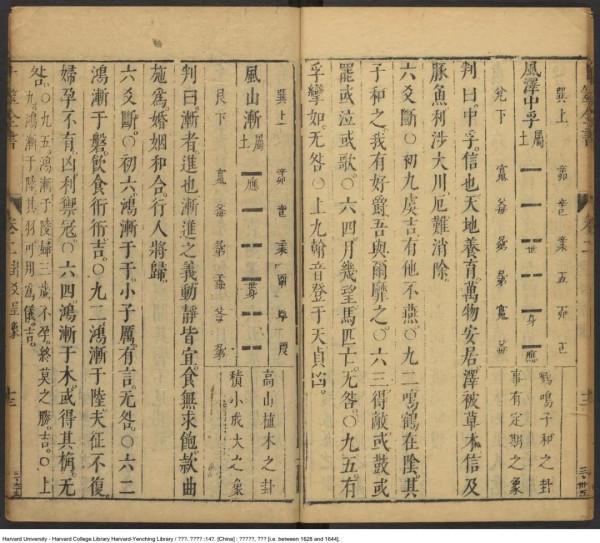 風澤中孚 屬土
巽上
兌下
世
身
應
鶴鳴子和之卦
事有定期之象
判曰中孚信也天地養育萬物安居澤被草木信及
豚魚利涉大川厄難消除
六爻斷○初九虞吉有他不燕○九二鳴鶴在陰其
子和之我有好爵吾與爾靡之○六三得敵或鼓或
罷或泣或歌○六四月幾望馬匹亡无咎○九五有
孚攣如无咎○上九翰音登于天貞凶
巽上
風山漸 屬土
艮下
應
世
高山植木之卦
積小成大之象
判曰漸者進也漸進之義動靜皆宜食無求飽款曲
施為婚姻和合行人將歸
六爻斷○初六鴻漸于干小子厲有言无咎○六二
鴻漸于磐飲食衎衎吉○九二鴻漸于陸夫征不復
婦孕不育凶利禦寇○六四鴻漸于木或得其桷无
咎○九五鴻漸于陵婦三歲不孕終莫之勝吉○上
九鴻漸于陸其羽可用為儀吉
全書
卷二
卦爻呈象
十三
Harvard University - Harvard College Library Harvard-Yenching Library / ???. ???? :147. [China] : ?????, ??? [i.e. between 1628 and 1644].